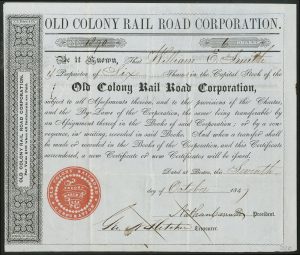 OLD COLONY RAIL ROAD CORPORATION.
SHARES.
Be it Known, That William E. Smith
is Proprietor of Six Shares in the Capital Stock of the
Old Colony Rail Road Corporation,
subject to all Assessments thereon, and to the provisions of the Charter,
and the By-Laws of the Corporation, the same being transferable by
Assignment thereof in the Records of said Corporation; or by a conveyance,
in writing, recorded in said Books. And when a transfer shall
be made or recorded in the Books of the Corporation, and this Certificate
surrendered, a new Certificate or new Certificates will be issued.
Dated at Boston, the Seventh
day of October 1847
President.
Treasurer.
OLD COLONY RAIL ROAD CORPORATION.